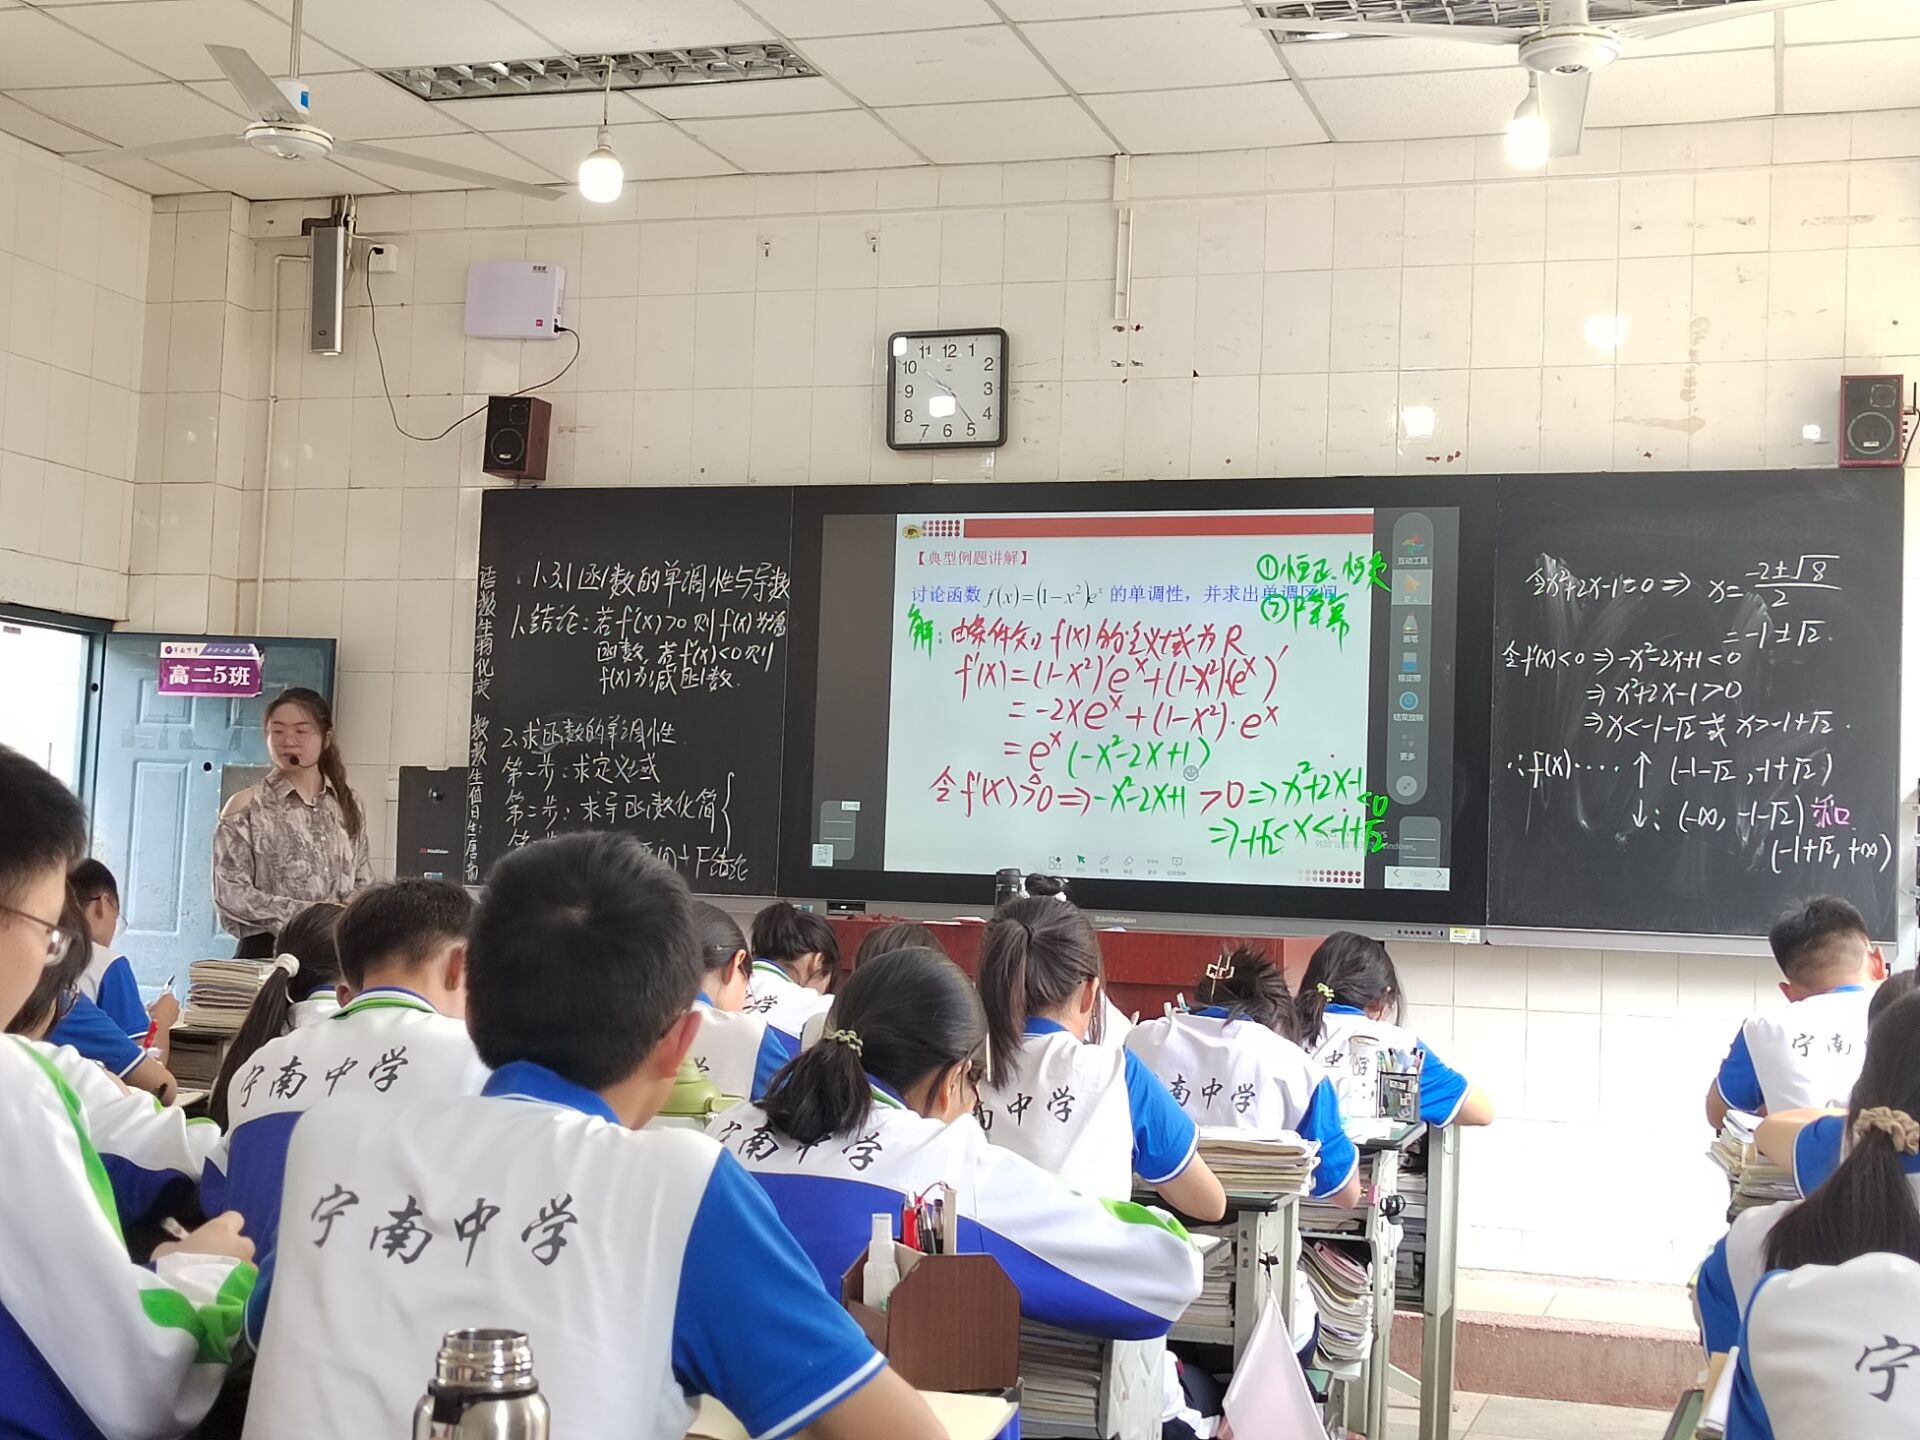 高二5班
11 12 1
10 2
9 3
8 4
7 6 5
语数生物化英
数数生
值日生:唐
1.3.1函数的单调性与导数
1.结论:若f'(x)>0则f(x)为增
函数,若f'(x)<0则
f(x)为减函数.
2.求函数的单调性.
第一步:求定义域
第二步:求导函数化简
下结论
【典型例题讲解】
讨论函数 f(x)=(1-x²)eˣ 的单调性,并求出单调区间
①恒正、恒负
解:由条件知,f(x)的定义域为R
f'(x)=(1-x²)'eˣ+(1-x²)(eˣ)'
=-2xeˣ+(1-x²)·eˣ
=eˣ(-x²-2x+1)
令f'(x)>0⇒-x²-2x+1>0⇒x²+2x-1<0
互动工具
画笔
橡皮擦
结束放映
更多
HiteVision
令x²+2x-1=0⇒ x=(-2±√8)/2
=-1±√2.
令f'(x)<0⇒-x²-2x+1<0
⇒x²+2x-1>0
⇒x<-1-√2 或 x>-1+√2.
∴f(x)····↑ (-1-√2,-1+√2)
↓: (-∞,-1-√2)和
(-1+√2,+∞)
宁南中学
宁南中学
宁南中学
南中学
南中学
中学
宁南
宁